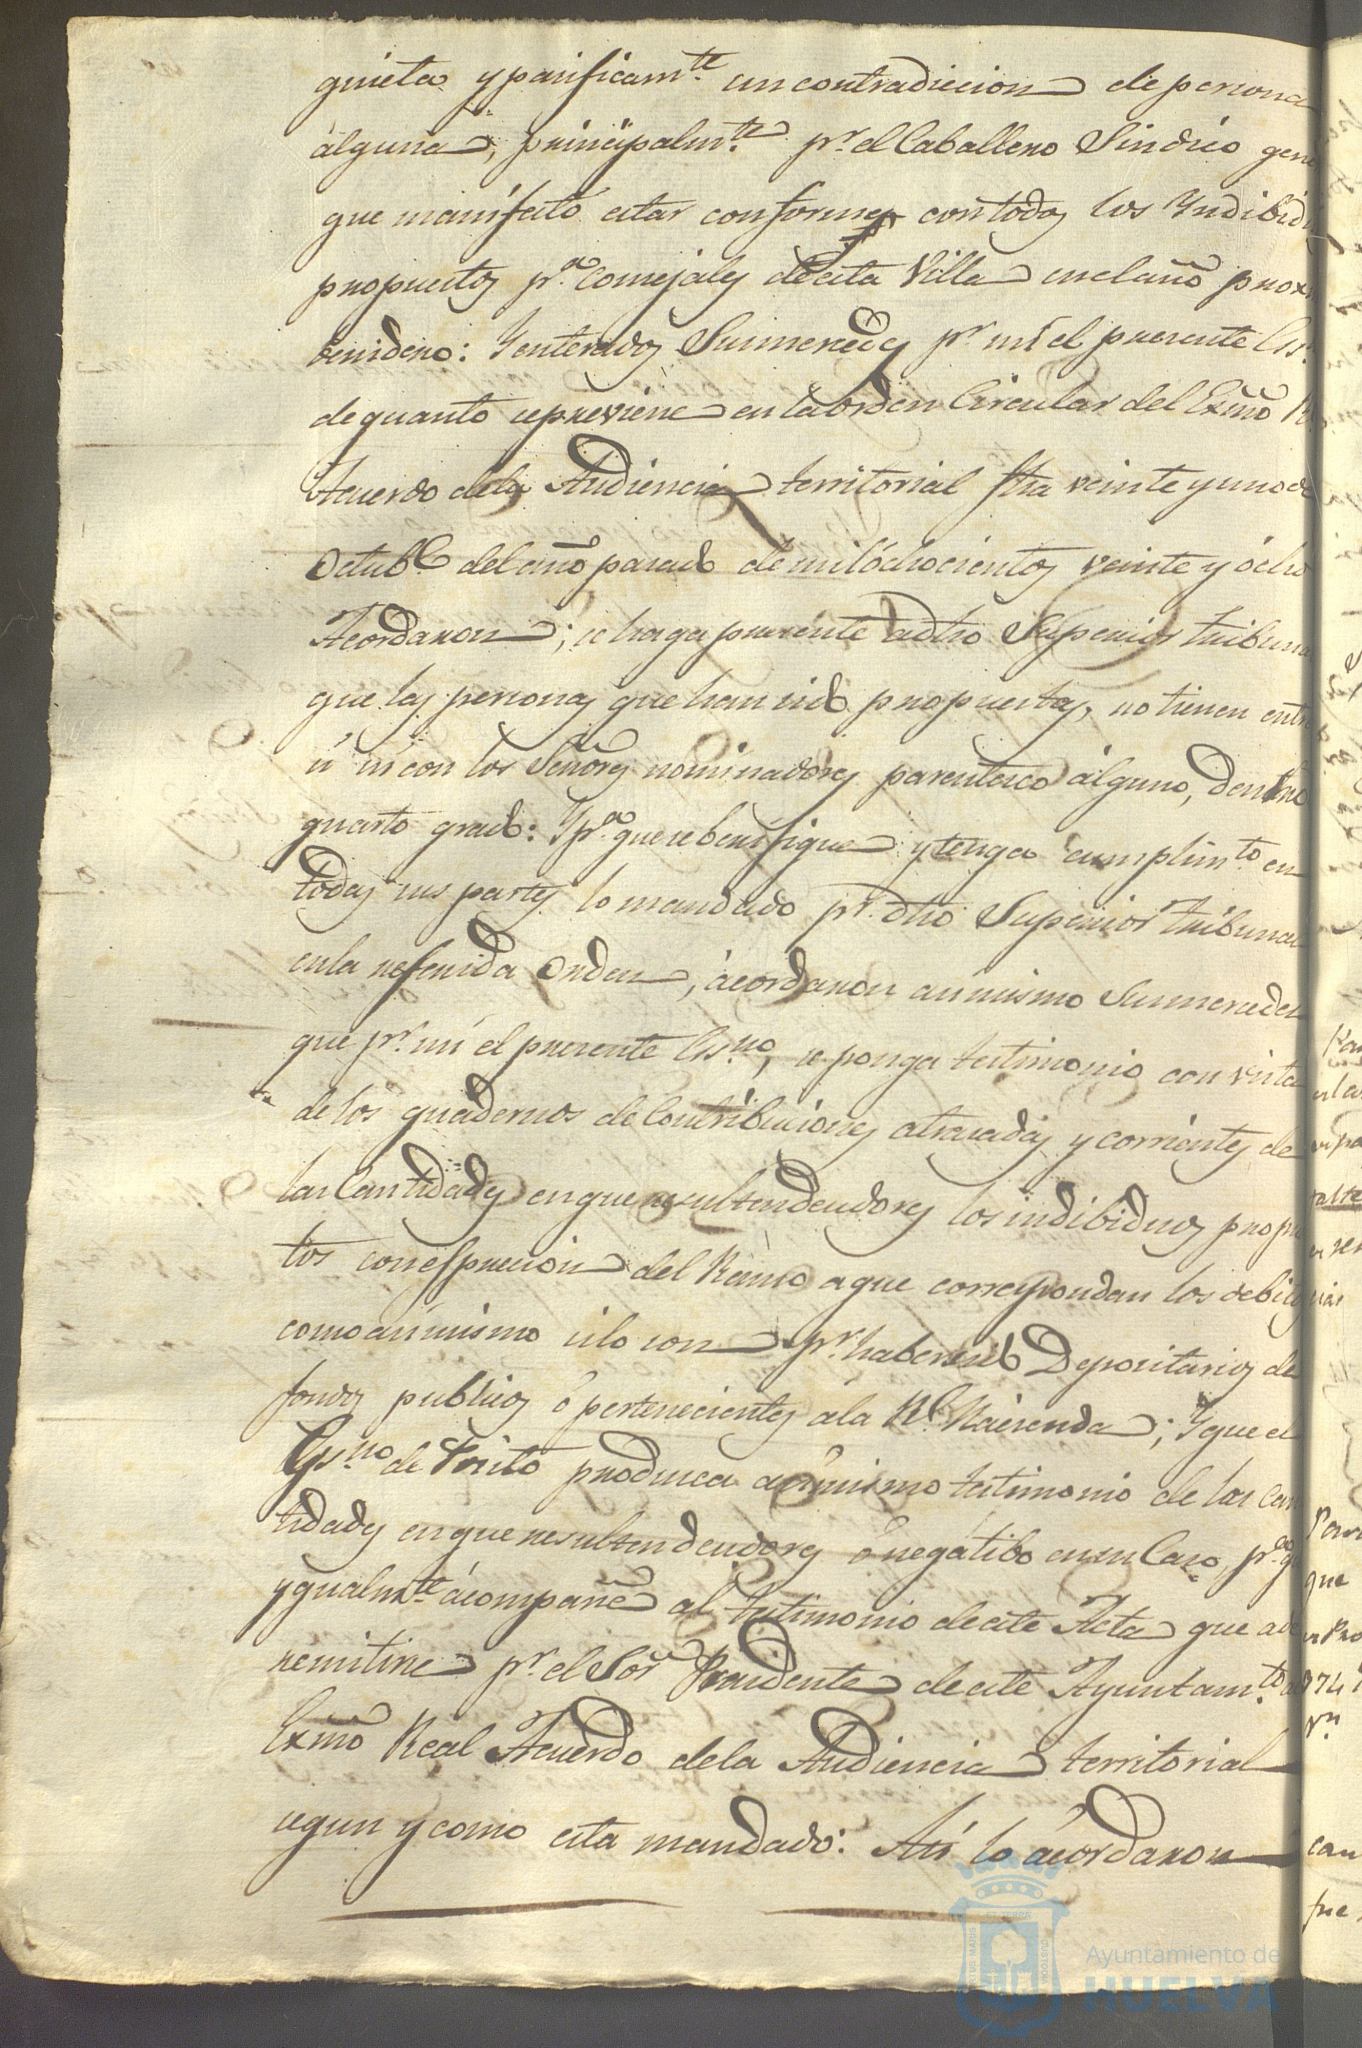 quieta y pasificam.te sin contradiccion de persona
alguna, prinsipalm.te p.r el Caballero Sindico gene
que manifestó estar conforme con todos los Yndibidu
propuestos p.a Consejales de esta Villa en el año prox
benidero: Y enterados Sus mercedes p.r mi el presente Es.
de quanto se previene en la orden Circular del Exmo R.
Acuerdo de la Audiencia territorial fha veinte y uno de
Octub.e del año pasado de mil óchocientos veinte y ócho
Acordaron; se haga presente a dho Superior tribuna
que las personas que han sido propuestas, no tienen entre
si ni con los Señores nominadores parentesco alguno, dentro
quarto grado: Y p.a que se berifique y tenga cumplim.to en
todas sus partes lo mandado p.r dho Superior tribunal
en la referida orden, ácordaron asi mismo Sus mercedes
que p.r mi el presente Es.no, se ponga testimonio con vista
de los quadernos de Contribuciones atrasadas y corrientes de
las Cantidades en que resulten deudores los indibiduos propues
tos con espresion del Ramo a que correspondan los debitos
como asi mismo si lo son p.r haber sido Depositarios de
fondos publicos ó pertenecientes á la R.l Hasienda; Y que el
Es.no de Posito produsca asi mismo testimonio de las can
tidades en que resulten deudores ó negátibo en su Caso, p.a q.e
ygualm.te ácompañe al testimonio de este Acta que a de
remitirse p.r el Sor Presidente de este Ayuntam.to al
Exmo Real Acuerdo de la Audiencia territorial
segun y como esta mandado: Asi lo ácordaron
Ayuntamiento de
HUELVA